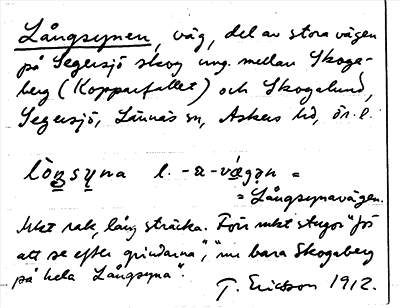 Långsynen, väg, del av stora vägen
på Segersjö skog ung. mellan Skoga-
berg (Kopparfallet) och Skogalund,
Segersjö, Lännäs sn, Askers hd, ör. l.
lòṉsyna l. -a-vá̱gǝn =
= Långsynavägen.
Mkt rak, lång sträcka. Förr mkt "för
att se efter grindarna", "nu bara Skogaberg
på hela Långsyna".
T. Ericsson 1912.